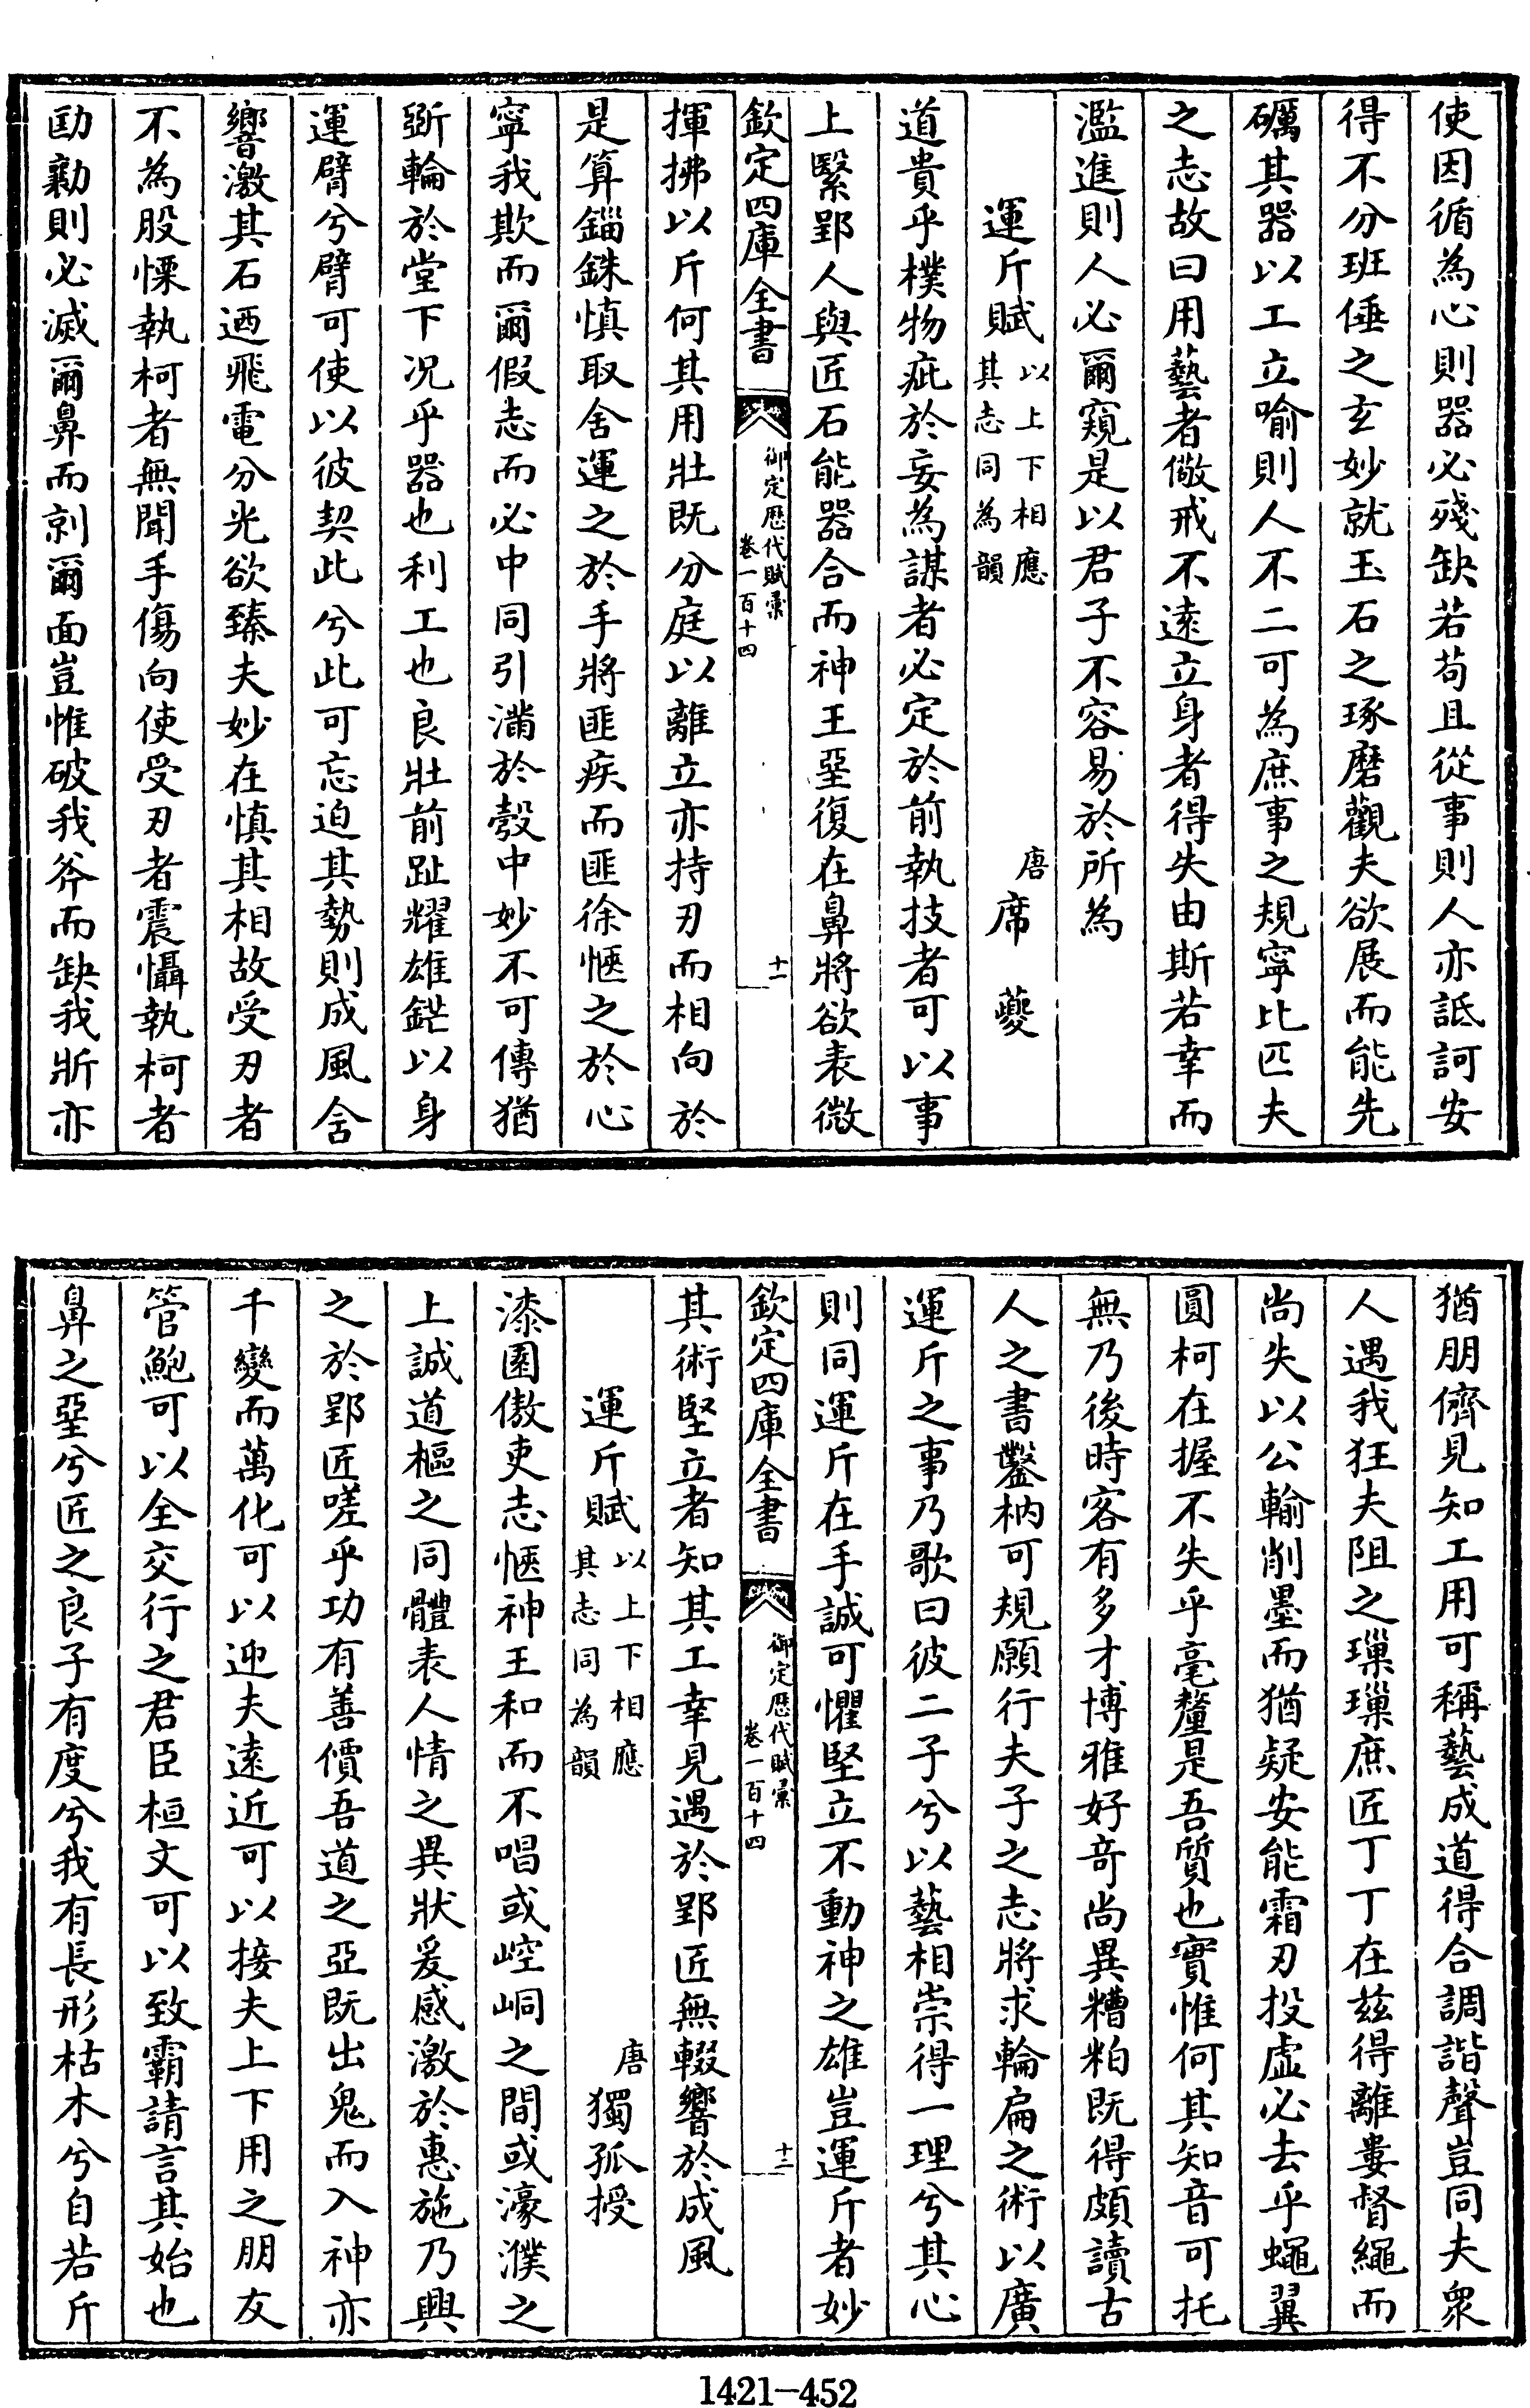 使因循為心則器必殘缺若苟且從事則人亦詆訶安
得不分班倕之玄妙就玉石之琢磨觀夫欲展而能先
礪其器以工立喻則人不二可為庶事之規寧比匹夫
之志故曰用藝者儆戒不遠立身者得失由斯若幸而
濫進則人必爾窺是以君子不容易於所為
運斤賦 以上下相應其志同為韻 唐 席夔
道貴乎樸物疵於妄為謀者必定於前執技者可以事
上繄郢人與匠石能器合而神王堊復在鼻將欲表微
欽定四庫全書 御定歴代賦彙 卷一百十四 十一
揮拂以斤何其用壯既分庭以離立亦持刃而相向於
是算錙銖慎取舍運之於手將匪疾而匪徐愜之於心
寧我欺而爾假志而必中同引滿於彀中妙不可傳猶
斲輪於堂下况乎器也利工也良壯前趾耀雄鋩以身
運臂兮臂可使以彼契此兮此可忘迫其勢則成風舍
響激其石迺飛電分光欲臻夫妙在慎其相故受刃者
不為股慄執柯者無聞手傷向使受刃者震懾執柯者
劻勷則必滅爾鼻而剠爾面豈惟破我斧而缺我斨亦
猶朋儕見知工用可稱藝成道得合調諧聲豈同夫衆
人遇我狂夫阻之璅璅庶匠丁丁在兹得離婁督繩而
尚失以公輸削墨而猶疑安能霜刃投虛必去乎蠅翼
圓柯在握不失乎毫釐是吾質也實惟何其知音可托
無乃後時客有多才博雅好竒尚異糟粕既得頗讀古
人之書鑿枘可規願行夫子之志將求輪扁之術以廣
運斤之事乃歌曰彼二子兮以藝相崇得一理兮其心
則同運斤在手誠可懼堅立不動神之雄豈運斤者妙
欽定四庫全書 御定歴代賦彙 卷一百十四 十二
其術堅立者知其工幸見遇於郢匠無輟響於成風
運斤賦 以上下相應其志同為韻 唐 獨孤授
漆園傲吏志愜神王和而不唱或崆峒之間或濠濮之
上誠道樞之同體表人情之異狀爰感激於惠施乃興
之於郢匠嗟乎功有善價吾道之亞既出鬼而入神亦
千變而萬化可以迎夫遠近可以接夫上下用之朋友
管鮑可以全交行之君臣桓文可以致霸請言其始也
鼻之堊兮匠之良子有度兮我有長形枯木兮自若斤
1421-452